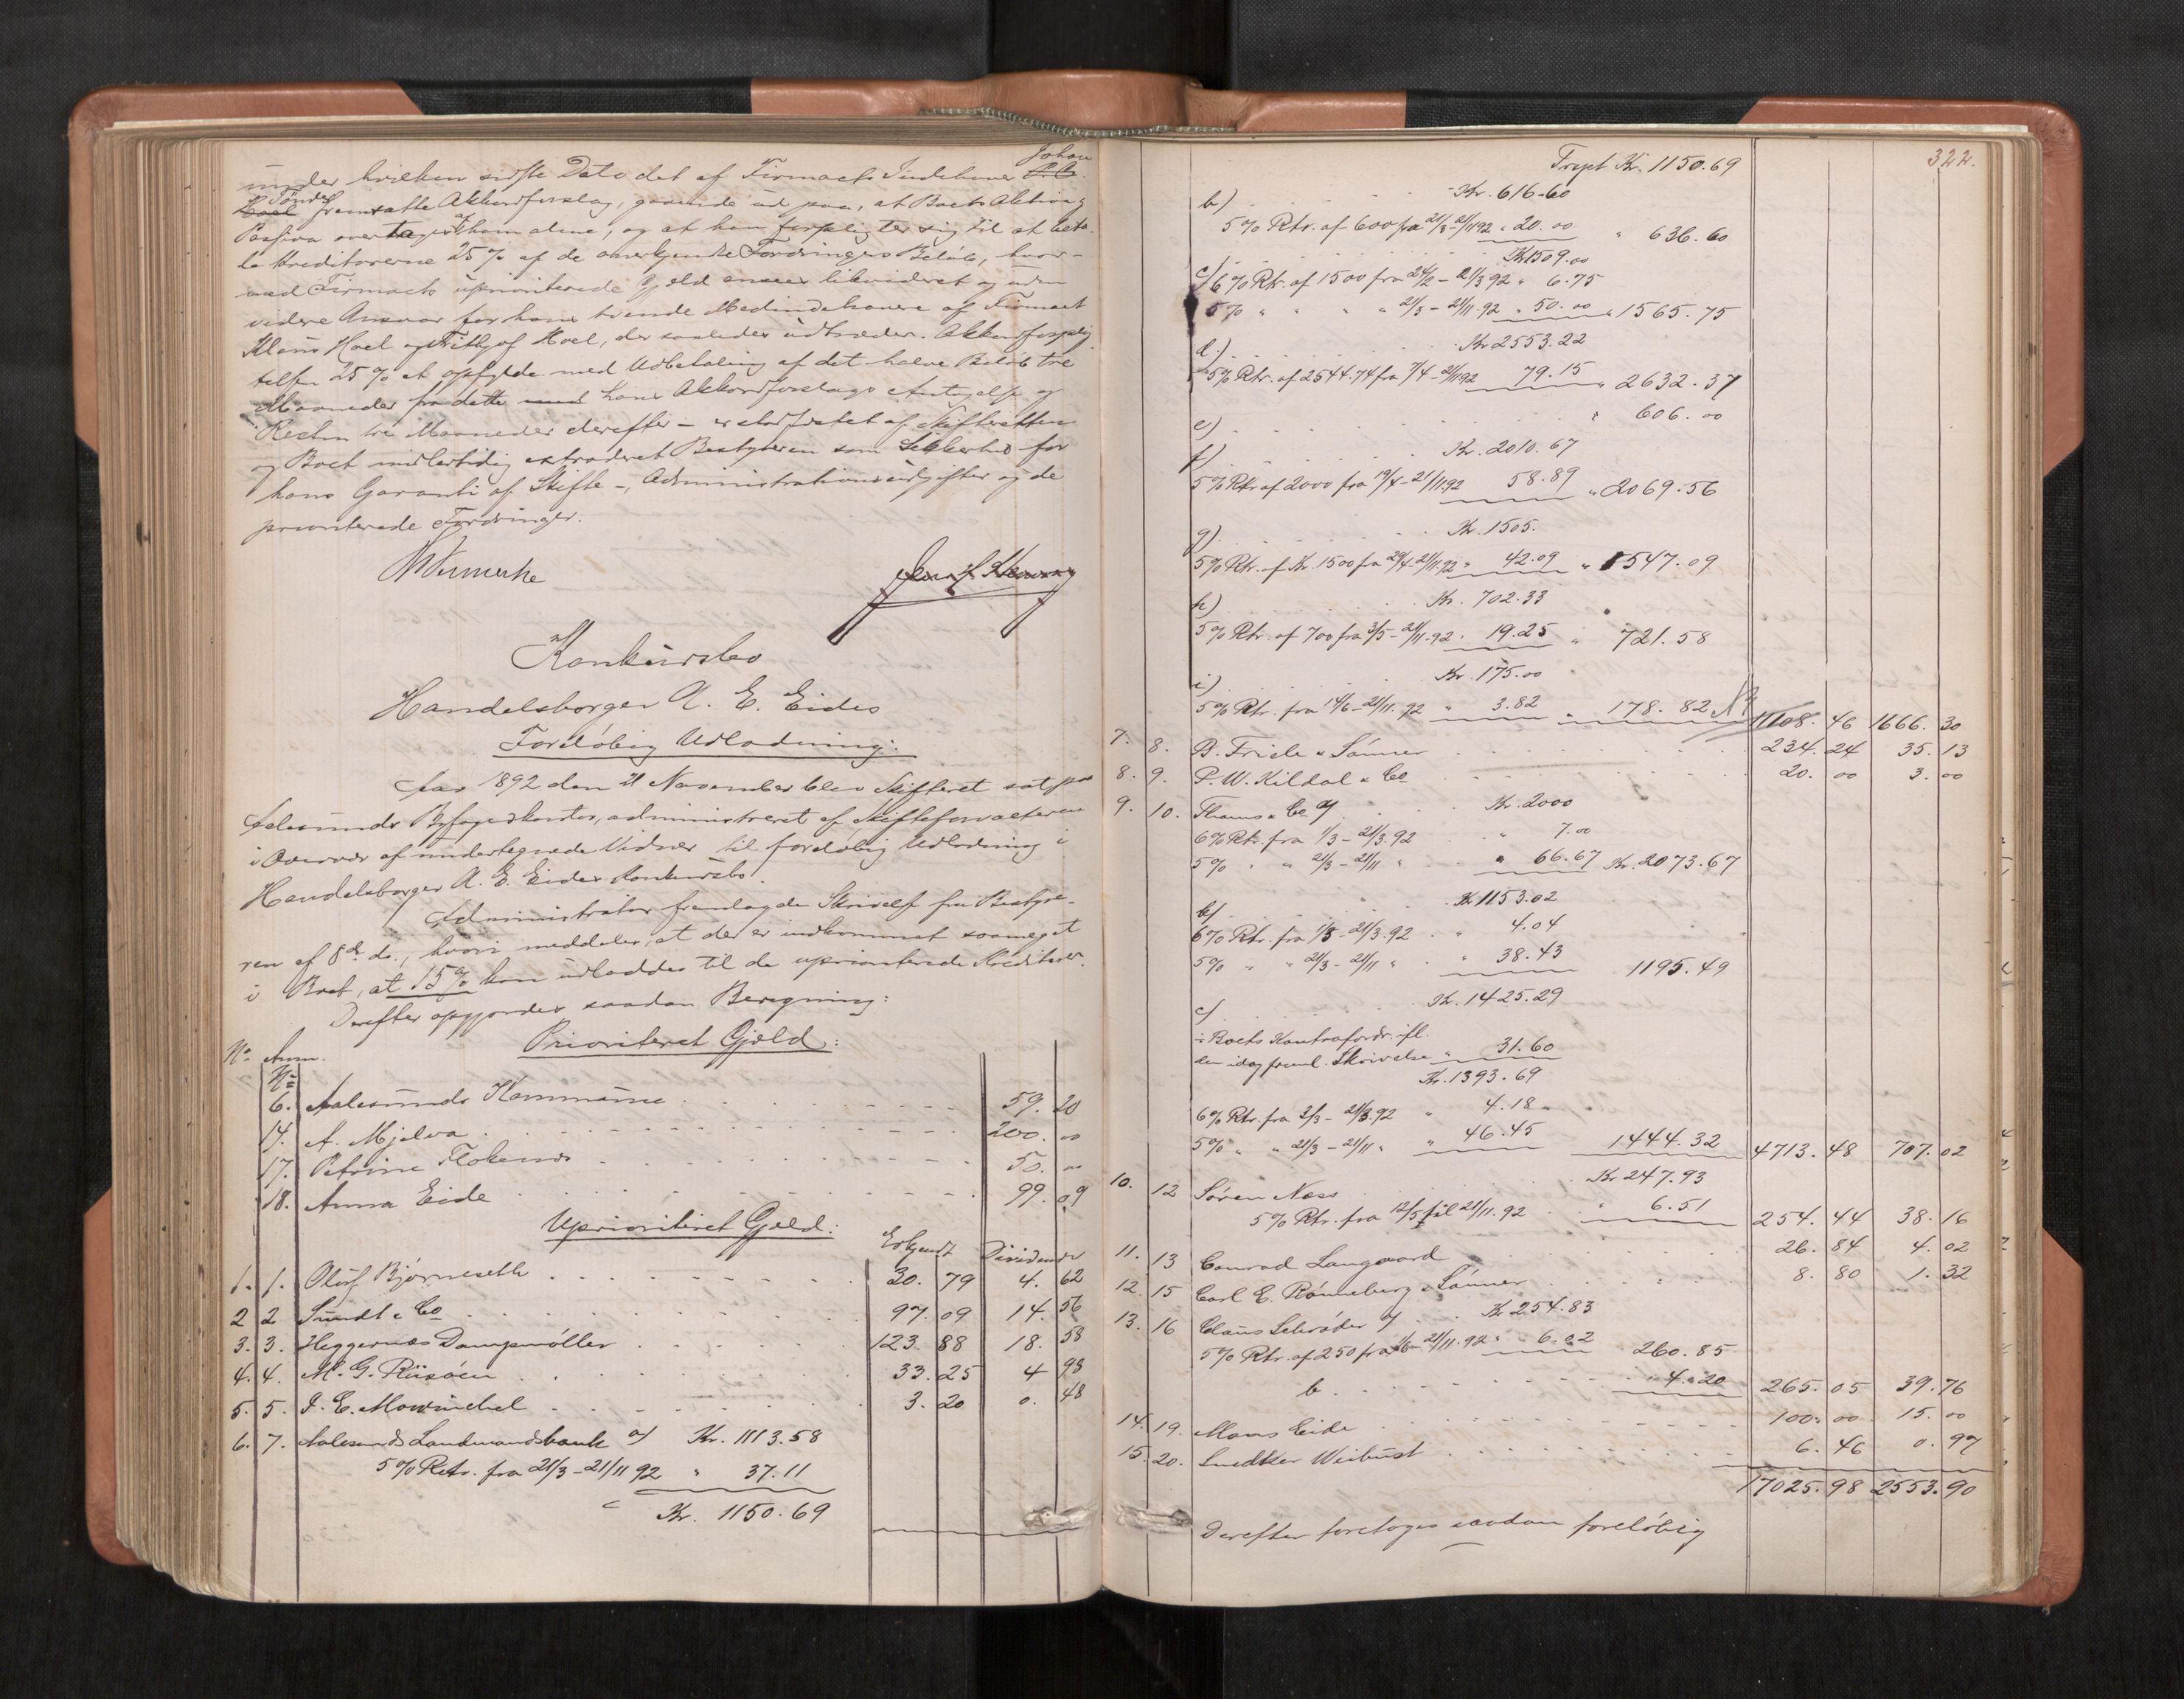 under hvilken sidste Dato det af Firmaets Indehaver Johan
Tønder fremsatte Akkordforslag, gaaende ud paa, at Boets Aktiva og
Passiva overtages af ham alene, og at han forpligter sig til at beta-
le Kreditorerne 25% af de anerkjendte Fordringers Beløb, hvor-
ved Firmaets uprioriterede Gjeld ansees likvideret og uden
videre Ansvar for hans tvende Medindehavere af Firmaet
Klaus Hoel og Frithjof Hoel, der saaledes udtræder. Akkordforplig-
telsen 25% at opfylde med Udbetaling af det halve Beløb tre
Maaneder fra dette hans Akkordforslags Antagelse og
Resten tre Maaneder derefter - er stadfæstet af Skifteretten
og Boet midlertidig extraderet Bestyreren som Sikkerhed for
hans Garanti af Skifte-, Administrationsudgifter og de
prioriterede Fordringer.
Konkursbo
Handelsborger A. E. Eides
Foreløbig Udlodning.
Aar 1892 den 21 November blev Skifteret sat paa
Aalesunds Byfogedkontor, administreret af Skifteforvalteren
i Overvær af undertegnede Vidner til foreløbig Udlodning i
Handelsborger A. E. Eides Konkursbo.
Administrator fremlagde Skrivelse fra Bestyre-
ren af 8de ds., hvori meddeles, at der er indkommet saameget
i Boet, at 15% kan udloddes til de uprioriterede Kreditorer.
Derefter opgjordes saadan Beregning:
Prioriteret Gjeld:
No Anm.
No
6. Aalesunds Kommune 59. 20
14. A. Mjelva 200. 00
17. Petrine Flokenes 50. 00
18. Anna Eide 99. 09
Uprioriteret Gjeld:
Erkjendt Dividende
1. 1. Oluf Bjørneseth 30. 79 4. 62
2 2 Sundt & Co 97. 09 14. 56
3. 3. Heggernes Dampmøller 123. 88 18. 58
4. 4. M. G. Riisøen 33. 25 4 98
5. 5. J. E. Mowinckel 3. 20 0. 48
6. 7. Aalesunds Landmandsbank a) Kr. 1113.58
5% Rtr. fra 21/3-21/11 92 " 37.11
Kr. 1150.69
322.
Trspt Kr. 1150.69
b) Kr. 616.60
5% Rtr. af 600 fra 21/3-21/11 92 " 20.00 " 636.60
c) Kr. 1509.00
6% Rtr. af 1500 fra 24/2-21/3 92 " 6.75
5% " " " 21/3-21/11.92 " 50.00 " 1565.75
d) Kr 2553.22
5% Rtr. af 2544.74 fra 7/4-21/11 92 79.15 " 2632.37
e) " 606.00
f) Kr. 2010.67
5% Rtr af 2000 fra 19/4-21/11.92 58.89 " 2069.56
g) Kr. 1505.
5% Rtr. af Kr. 1500 fra 29/4-21/11.92 " 42.09 " 1547.09
h) Kr. 702.33
5% Rtr. af 700 fra 3/5-21/11.92 " 19.25 " 721.58
i) Kr. 175.00
5% Rtr. fra 14/6-21/11.92 " 3.82 " 178.82 11108. 46 1666. 30
7. 8. B. Friele & Sønner 234. 24 35. 13
8. 9. P. W. Kildal & Co 20. 00 3. 00
9. 10. Thams & Co a) Kr. 2000
6% Rtr. fra 1/3-21/3.92 " 7.00
5% " " 21/3-21/11 " " 66.67 Kr. 2073.67
b) Kr. 1153.02
6% Rtr. fra 1/3-21/3.92 " 4.04
5% " " 21/3-21/11 " " 38.43 1195.49
c) Kr. 1425.29
÷ Boets Kontrafordr. ifl.
den idag freml. Skrivelse " 31.60
Kr. 1393.69
6% Rtr. fra 3/3-21/3.92 " 4.18
5% " " 21/3-21/11 " " 46.45 1444.32 4713. 48 707. 02
10. 12 Søren Næss Kr 247.93
5% Rtr. fra 12/5 til 21/11.92 " 6.51 254. 44 38. 16
11. 13 Conrad Langaard 26. 84 4. 02
12. 15 Carl E. Rønneberg & Sønner 8. 80 1. 32
13. 16 Claus Schrøder a) Kr 254.83
5% Rtr. af 250 fra 1/6-21/11.92 " 6.02 260.85
b " 4.20 265. 05 39. 76
14. 19. Mons Eide 100. 00 15. 00
15. 20. Snedker Weibust 6. 46 0. 97
17025. 98 2553. 90
Derefter foretoges saadan foreløbig